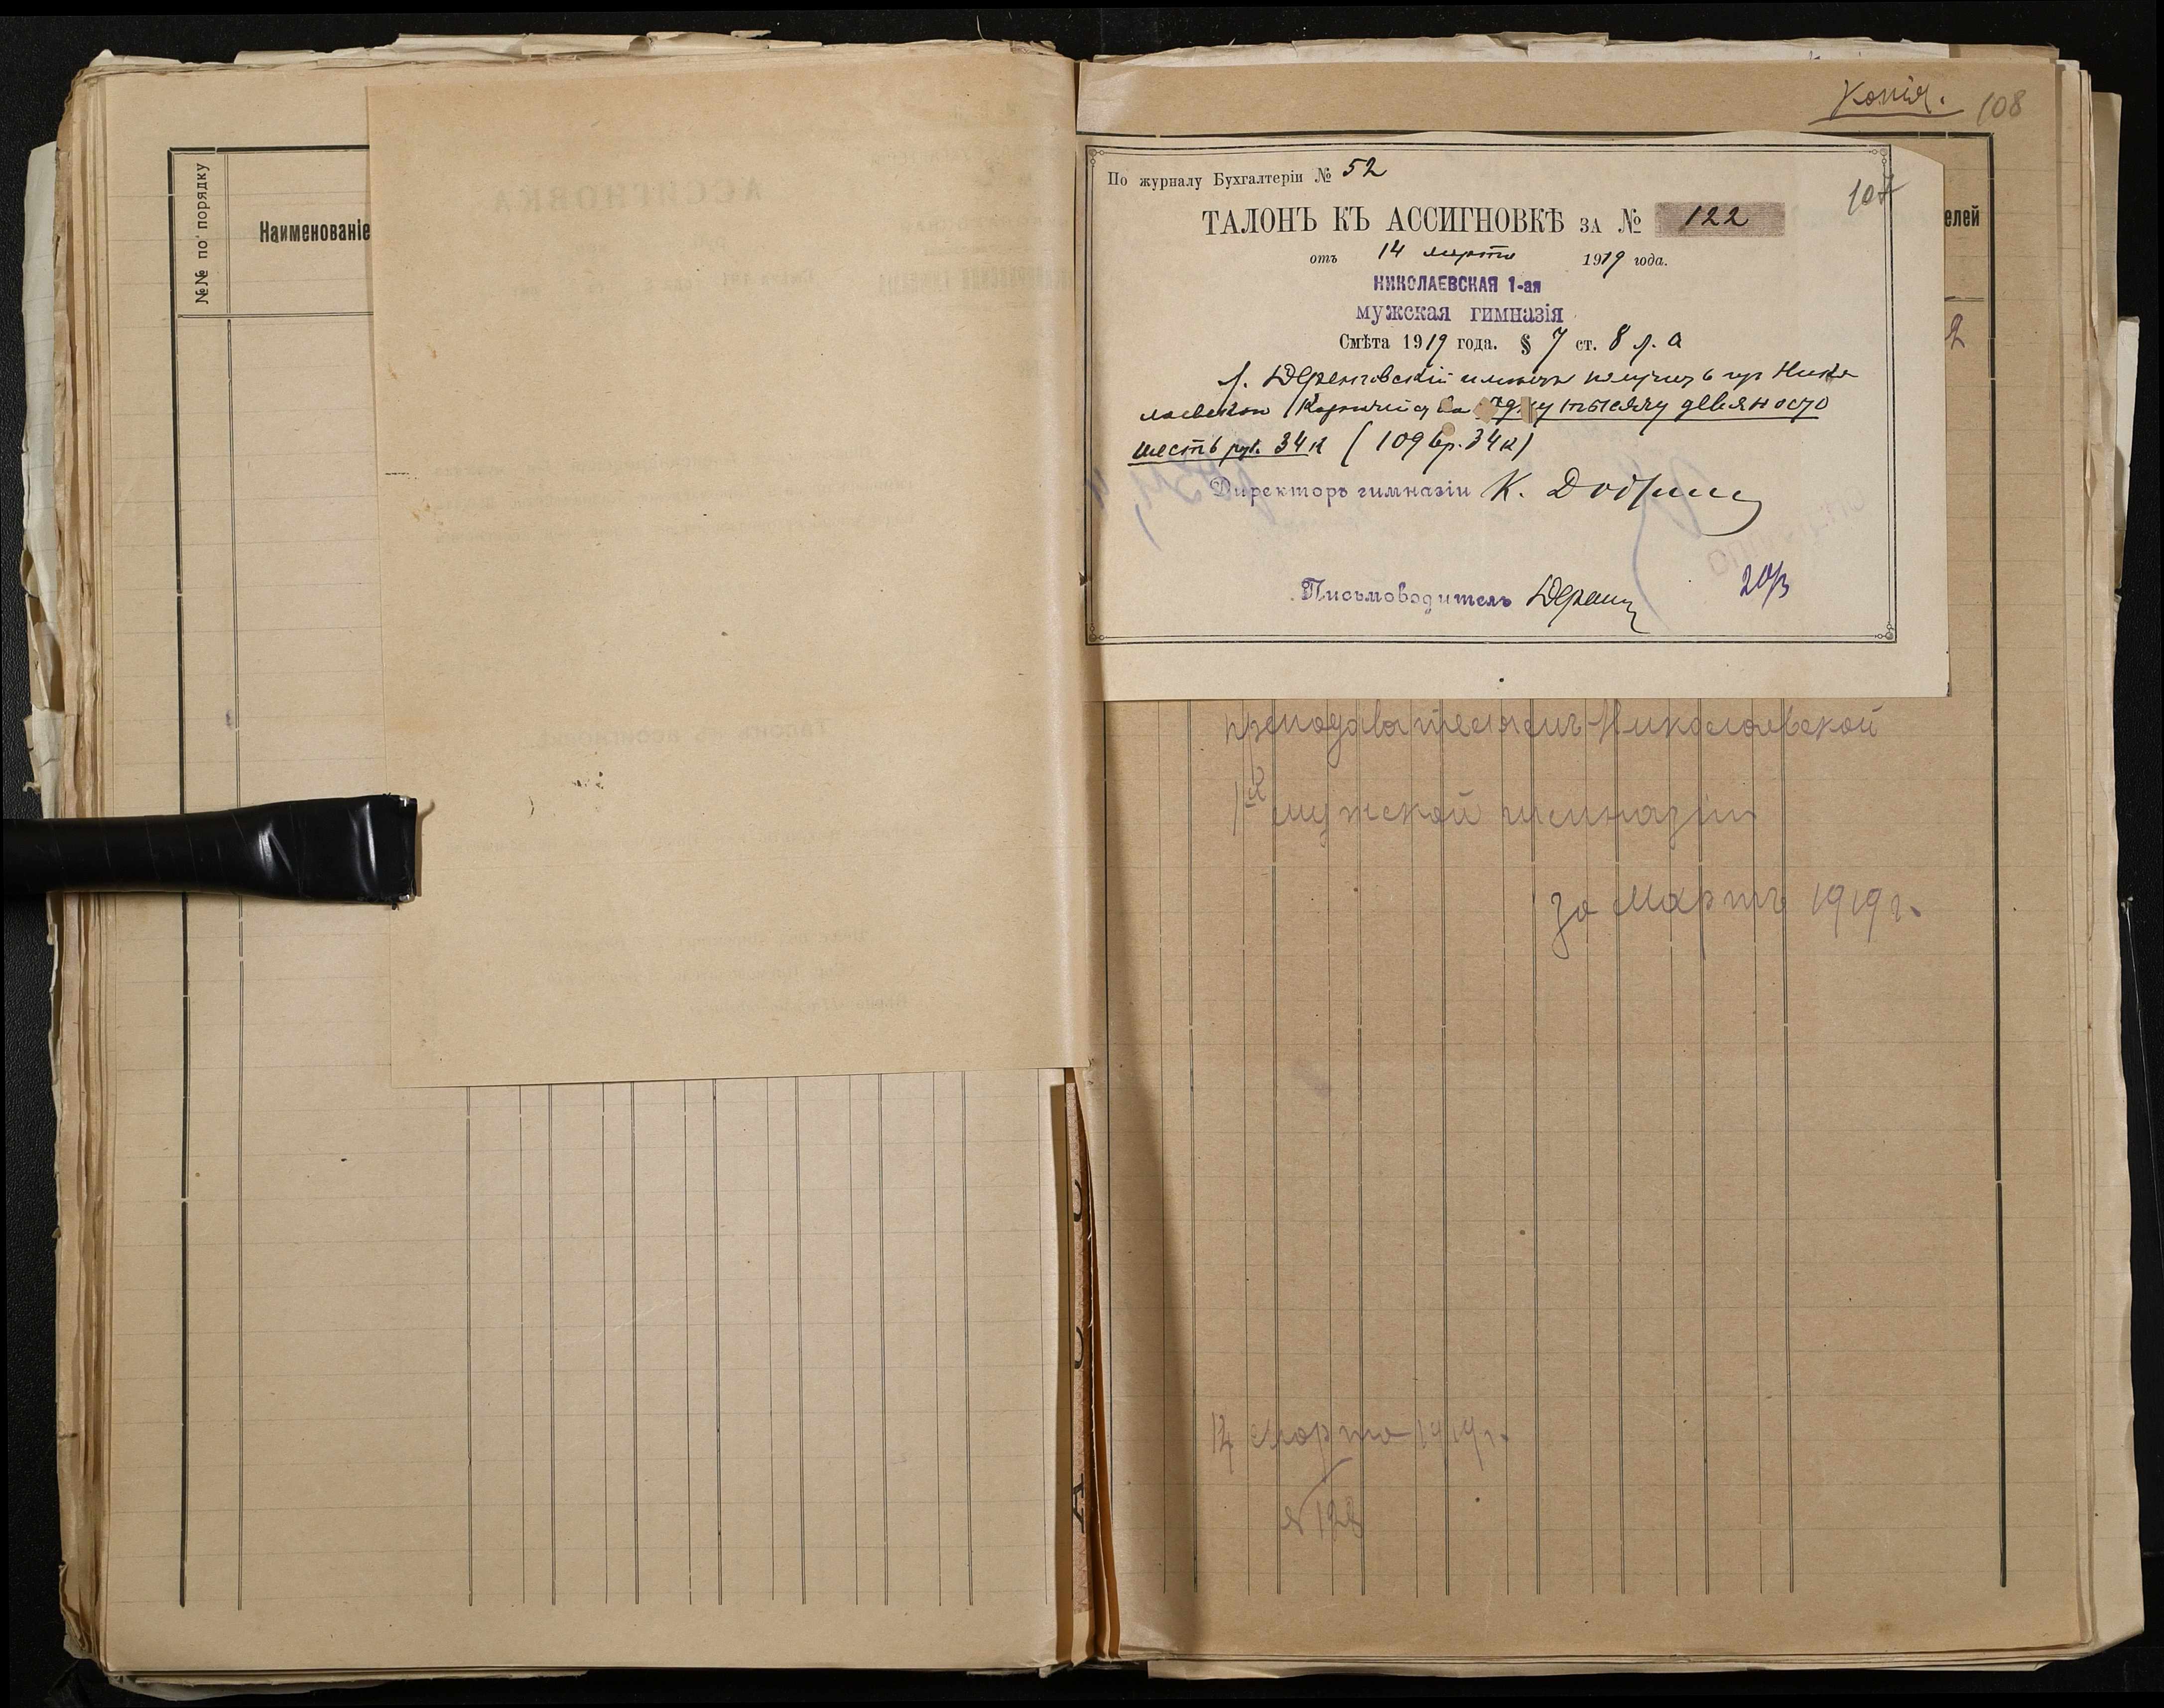 №№ по порядку
Наименованіе
Копія.
108
По журналу Бухгалтеріи № 52
107
ТАЛОНЪ КЪ АССИГНОВКѢ ЗА № 122
елей
отъ 14 марта 1919 года.
НИКОЛАЕВСКАЯ 1-ая
мужская гимназія
Смѣта 1919 года. § 7 ст. 8 л. а
имѣетъ получить изъ Нико
лаевскаго Казначейства одну тысячу девяносто
шесть руб. 34 к (1096р. 34к)
Директоръ гимназіи К.
Письмоводитель
20/3
преподавателямъ Николаевской
1й мужской гимназіи
за Мартъ 1919 г.
14 Марта 1919 г.
№ 122